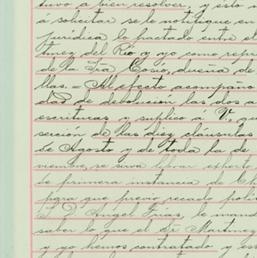 tuvo a bien resolver, y esto
á solicitar se le notifique en
jurídica lo pactado entre el
tinez del Río y yo como repre
de la Sra Cosío, dueña de
llas.= Al efecto acompaño
de devolucion las dos a
escrituras y suplico a V. que
sercion de las diez cláusulas
de Agosto y de toda la de
viembre, se sirva librar exhorto
de primera instancia de Ch
para que previo recado poli
D. Angel Frias, le mand
saber lo que el Sr Martinez
y yo hemos contratado y es